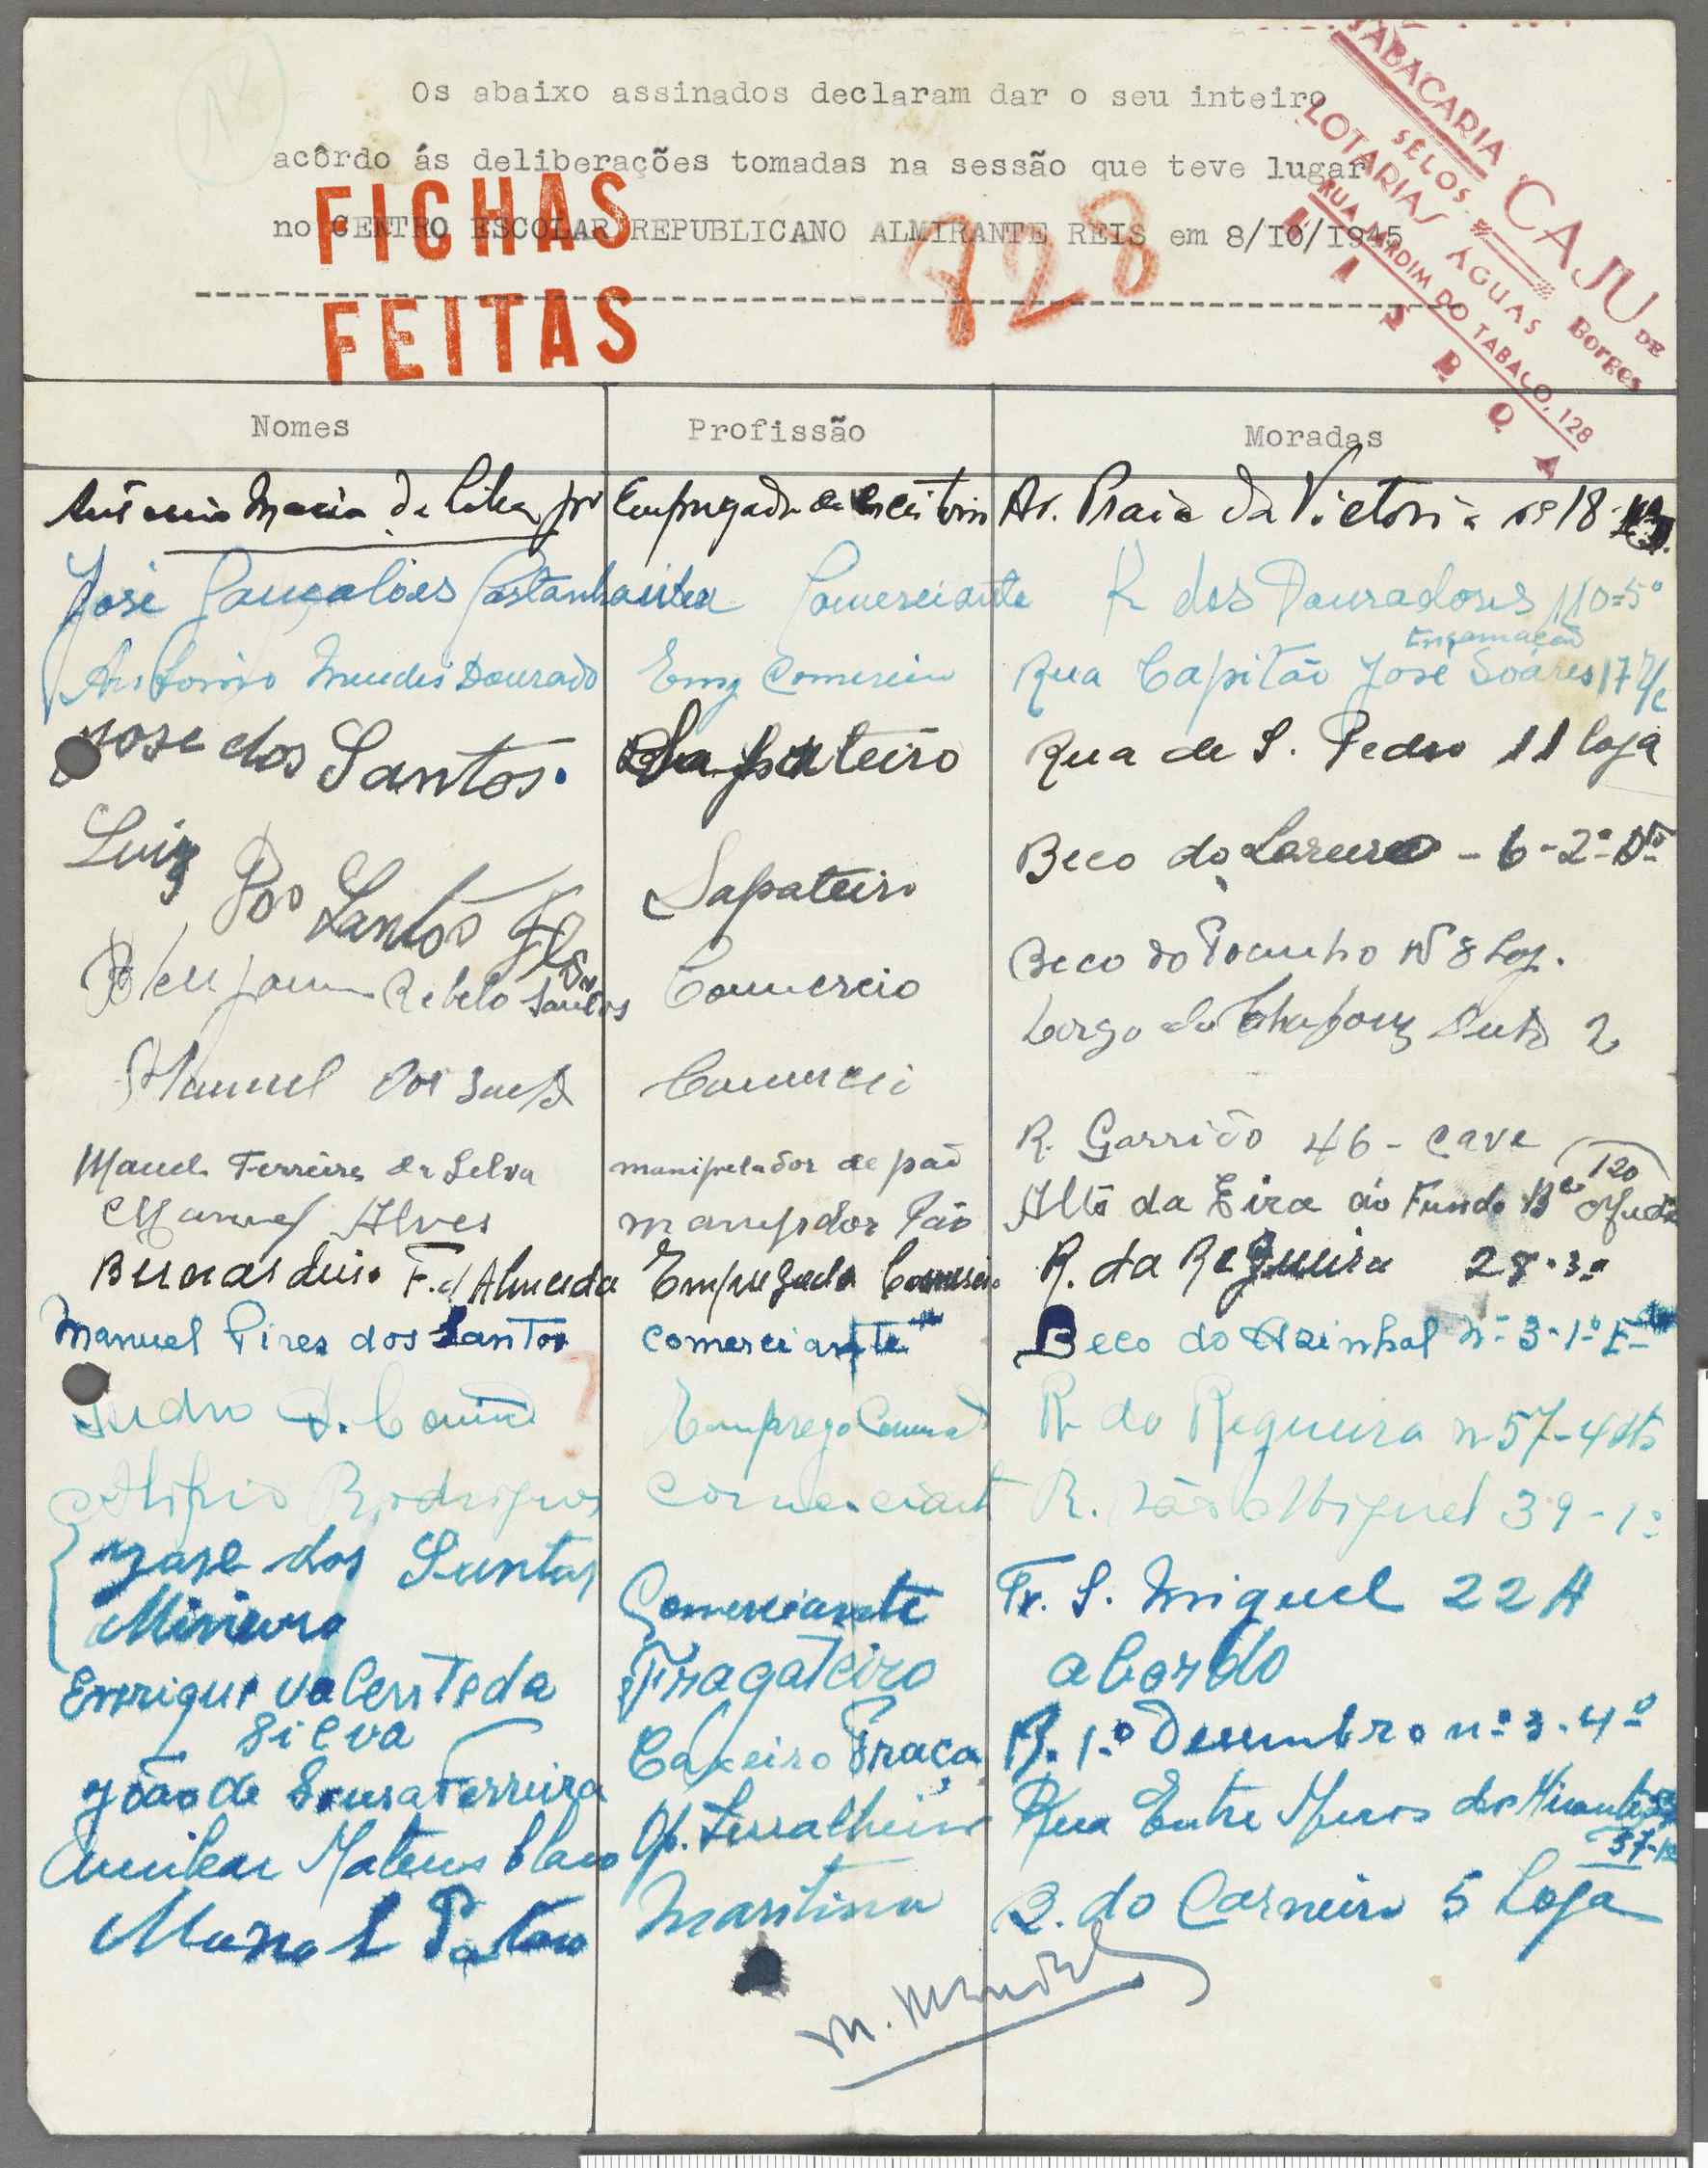 Os abaixo assinados declaram dar o seu inteiro
acôrdo ás deliberações tomadas na sessão que teve lugar
no CENTRO ESCOLAR REPUBLICANO ALMIRANTE REIS em 8/I0/I945
FICHAS
FEITAS
828
TABACARIA CAJU DE
SELOS Borges
LOTARIAS AGUAS
RUA JARDIM DO TABACO, 128
LISBOA
Nomes Profissão Moradas
António Maria da Silva Empregado de escritorio Av. Praia da Victoria nº 18
José Gonçalves Castanheira Comerciante R dos Douradores 110=5º
Encarnação
Antonino Mendes Dourado Emp Comercio Rua Capitão José Soares 17 r/c
José dos Santos. Sapateiro Rua de S. Pedro 11 loja
Luiz dos Santos Sapateiro Beco do Loureiro - 6-2º-Dto
Benjamim Rebelo Santos Comercio Beco do Pocinho Nº 8 Loj.
Manuel dos Santos Comercio Largo do Chafariz Dentro 2
Manuel Ferreira da Silva manipelador de pão R. Garrido 46 - cave
Manuel Alves Pão Alto da Eira ao Fundo 120 Ajuda
Bernardino F. d'Almeida Empregado Comercio R. da Regueira 28-3º
Manuel Pires dos Santos comerciante Beco do Azinhal nº 3-1º E
Pedro D. Empreg Comercio R da Regueira n 57-4 dto
Alipio Rodrigues comerciante R. São Miguel 39-1º
José dos Santos
Mineiro Comerciante Tr. S. Miguel 22 A
Enrique Valente da
Silva Fragateiro abordo
João de Sousa Ferreira Caxeiro Praça R. 1º Desembro nº 3-4º
Amilcar Mateus Op. Serralheiro Rua Entre Muros do Mirante
37-1º
Manoel Patrão Maritimo B. do Carneiro 5 Loja
M. Mendes